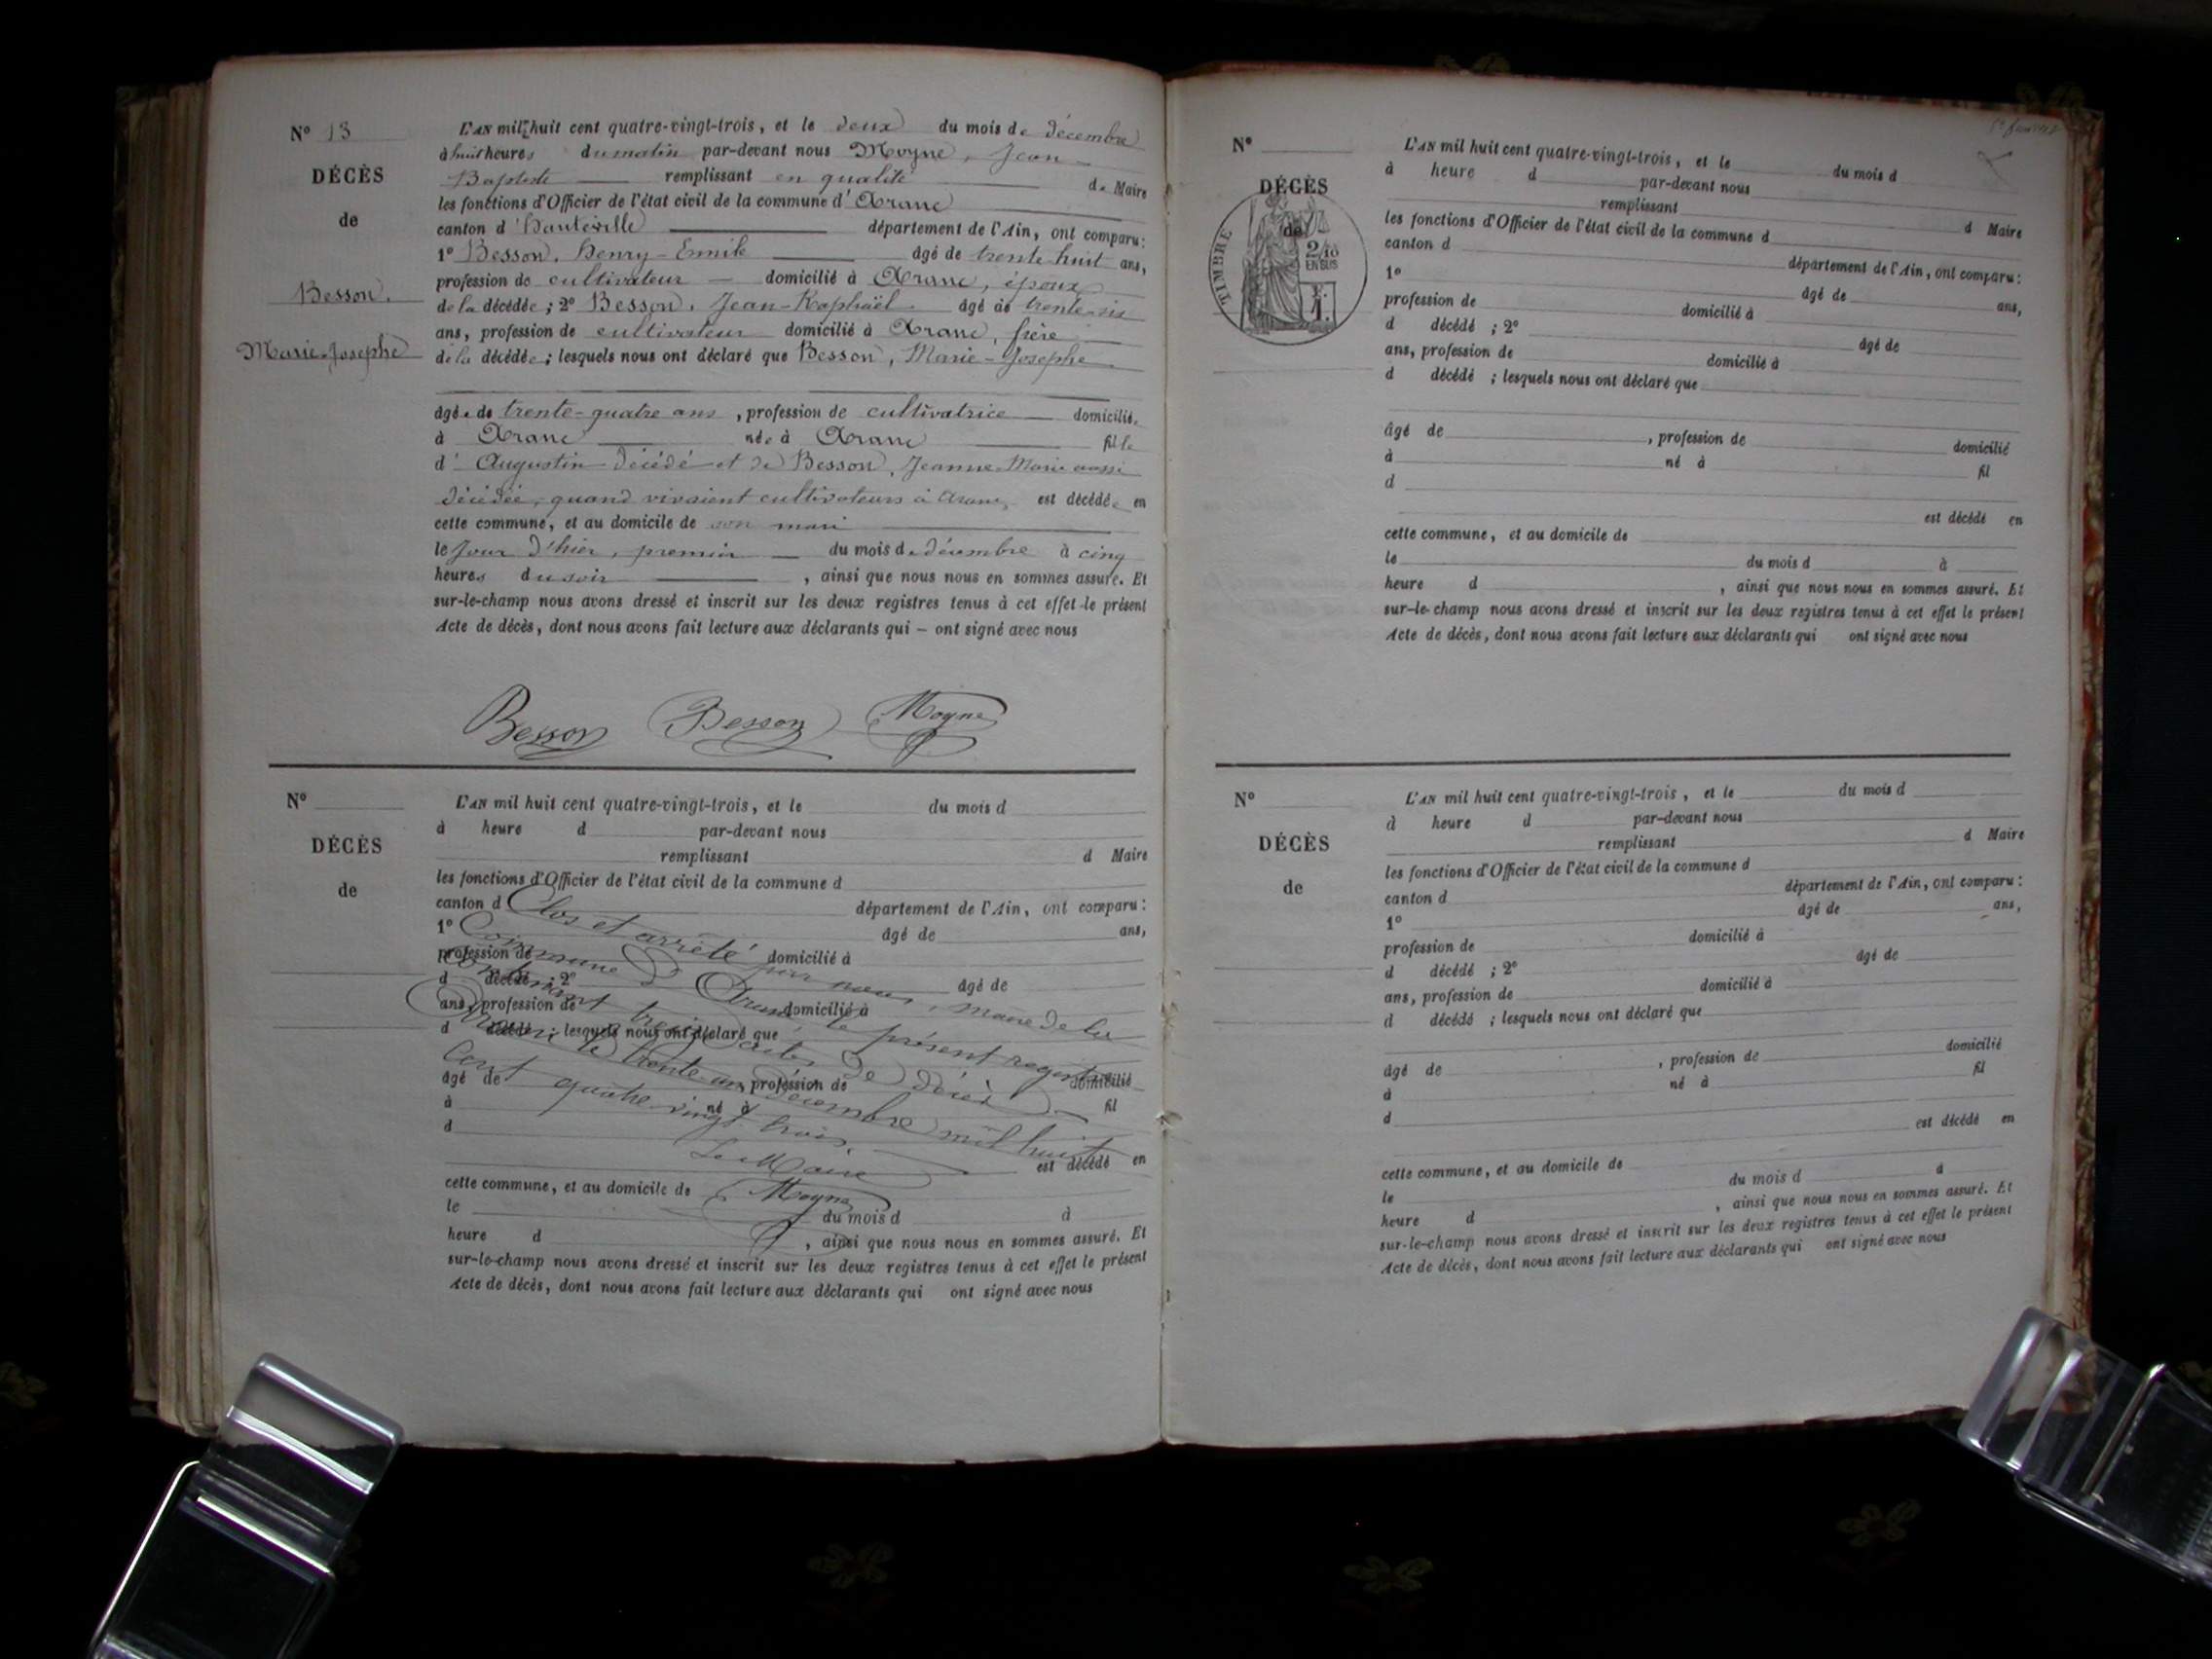 N° 13
DÉCÈS
de
Besson.
Marie-Josephe
L'AN mil huit cent quatre-vingt-trois, et le deux du mois de décembre
à huit heures du matin par-devant nous Moyne, Jean-
Baptiste remplissant en qualité de Maire
les fonctions d'Officier de l'état civil de la commune d'Aranc
canton d'Hauteville département de l'Ain, ont comparu:
1° Besson, Henry-Emile âgé de trente-huit ans,
profession de cultivateur domicilié à Aranc, époux
de la décédée; 2° Besson, Jean-Raphaël âgé de trente-six
ans, profession de cultivateur domicilié à Aranc, frère
de la décédée; lesquels nous ont déclaré que Besson, Marie-Josephe
âgée de trente-quatre ans, profession de cultivatrice domiciliée
à Aranc née à Aranc fille
d'Augustin décédé et de Besson, Jeanne-Marie aussi
décédée, quand vivaient cultivateurs à Aranc, est décédée en
cette commune, et au domicile de son mari
le jour d'hier, premier du mois de décembre à cinq
heures du soir, ainsi que nous nous en sommes assuré. Et
sur-le-champ nous avons dressé et inscrit sur les deux registres tenus à cet effet le présent
Acte de décès, dont nous avons fait lecture aux déclarants qui — ont signé avec nous
Besson Besson Moyne
N°
DÉCÈS
de
L'AN mil huit cent quatre-vingt-trois, et le du mois d
à heure d par-devant nous
remplissant d Maire
les fonctions d'Officier de l'état civil de la commune d
canton d département de l'Ain, ont comparu:
1° âgé de ans,
profession de domicilié à
d décédé ; 2° âgé de
ans, profession de domicilié à
d décédé ; lesquels nous ont déclaré que
âgé de , profession de domicilié
à né à fil
d
est décédé en
cette commune, et au domicile de
le du mois d à
heure d , ainsi que nous nous en sommes assuré. Et
sur-le-champ nous avons dressé et inscrit sur les deux registres tenus à cet effet le présent
Acte de décès, dont nous avons fait lecture aux déclarants qui ont signé avec nous
Clos et arrêté par nous, maire de la
Commune d'Aranc, le présent registre
contenant treize actes de décès
Aranc, le trente un décembre mil huit
cent quatre-vingt trois.
Le Maire
Moyne
N°
DÉCÈS
de
TIMBRE
2/10
EN SUS
F.
1.
L'AN mil huit cent quatre-vingt-trois, et le du mois d
à heure d par-devant nous
remplissant d Maire
les fonctions d'Officier de l'état civil de la commune d
canton d département de l'Ain, ont comparu:
1° âgé de ans,
profession de domicilié à
d décédé ; 2° âgé de
ans, profession de domicilié à
d décédé ; lesquels nous ont déclaré que
âgé de , profession de domicilié
à né à fil
d
est décédé en
cette commune, et au domicile de
le du mois d à
heure d , ainsi que nous nous en sommes assuré. Et
sur-le-champ nous avons dressé et inscrit sur les deux registres tenus à cet effet le présent
Acte de décès, dont nous avons fait lecture aux déclarants qui ont signé avec nous
N°
DÉCÈS
de
L'AN mil huit cent quatre-vingt-trois, et le du mois d
à heure d par-devant nous
remplissant d Maire
les fonctions d'Officier de l'état civil de la commune d
canton d département de l'Ain, ont comparu:
1° âgé de ans,
profession de domicilié à
d décédé ; 2° âgé de
ans, profession de domicilié à
d décédé ; lesquels nous ont déclaré que
âgé de , profession de domicilié
à né à fil
d
est décédé en
cette commune, et au domicile de
le du mois d à
heure d , ainsi que nous nous en sommes assuré. Et
sur-le-champ nous avons dressé et inscrit sur les deux registres tenus à cet effet le présent
Acte de décès, dont nous avons fait lecture aux déclarants qui ont signé avec nous